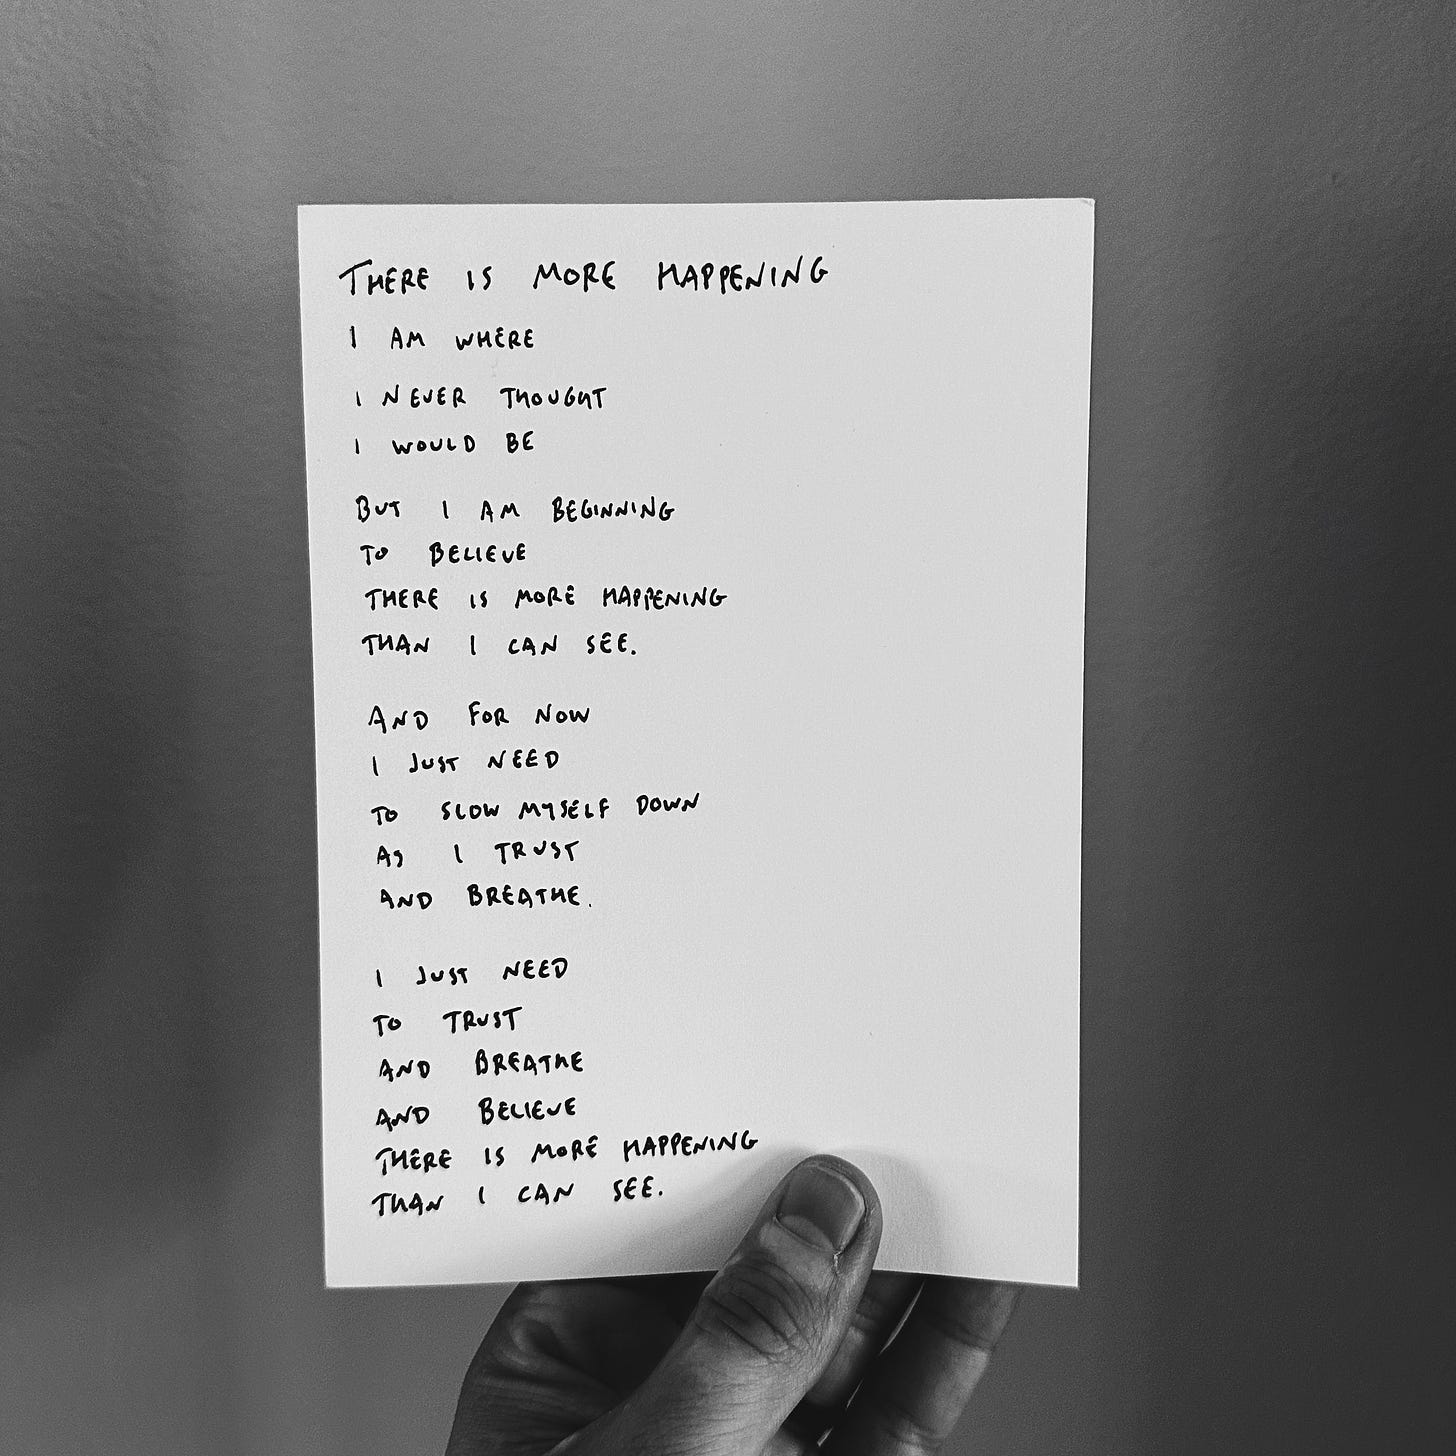 THERE IS MORE HAPPENING
I AM WHERE
I NEVER THOUGHT
I WOULD BE
BUT I AM BEGINNING
TO BELIEVE
THERE IS MORE HAPPENING
THAN I CAN SEE.
AND FOR NOW
I JUST NEED
TO SLOW MYSELF DOWN
AS I TRUST
AND BREATHE.
I JUST NEED
TO TRUST
AND BREATHE
AND BELIEVE
THERE IS MORE HAPPENING
THAN I CAN SEE.